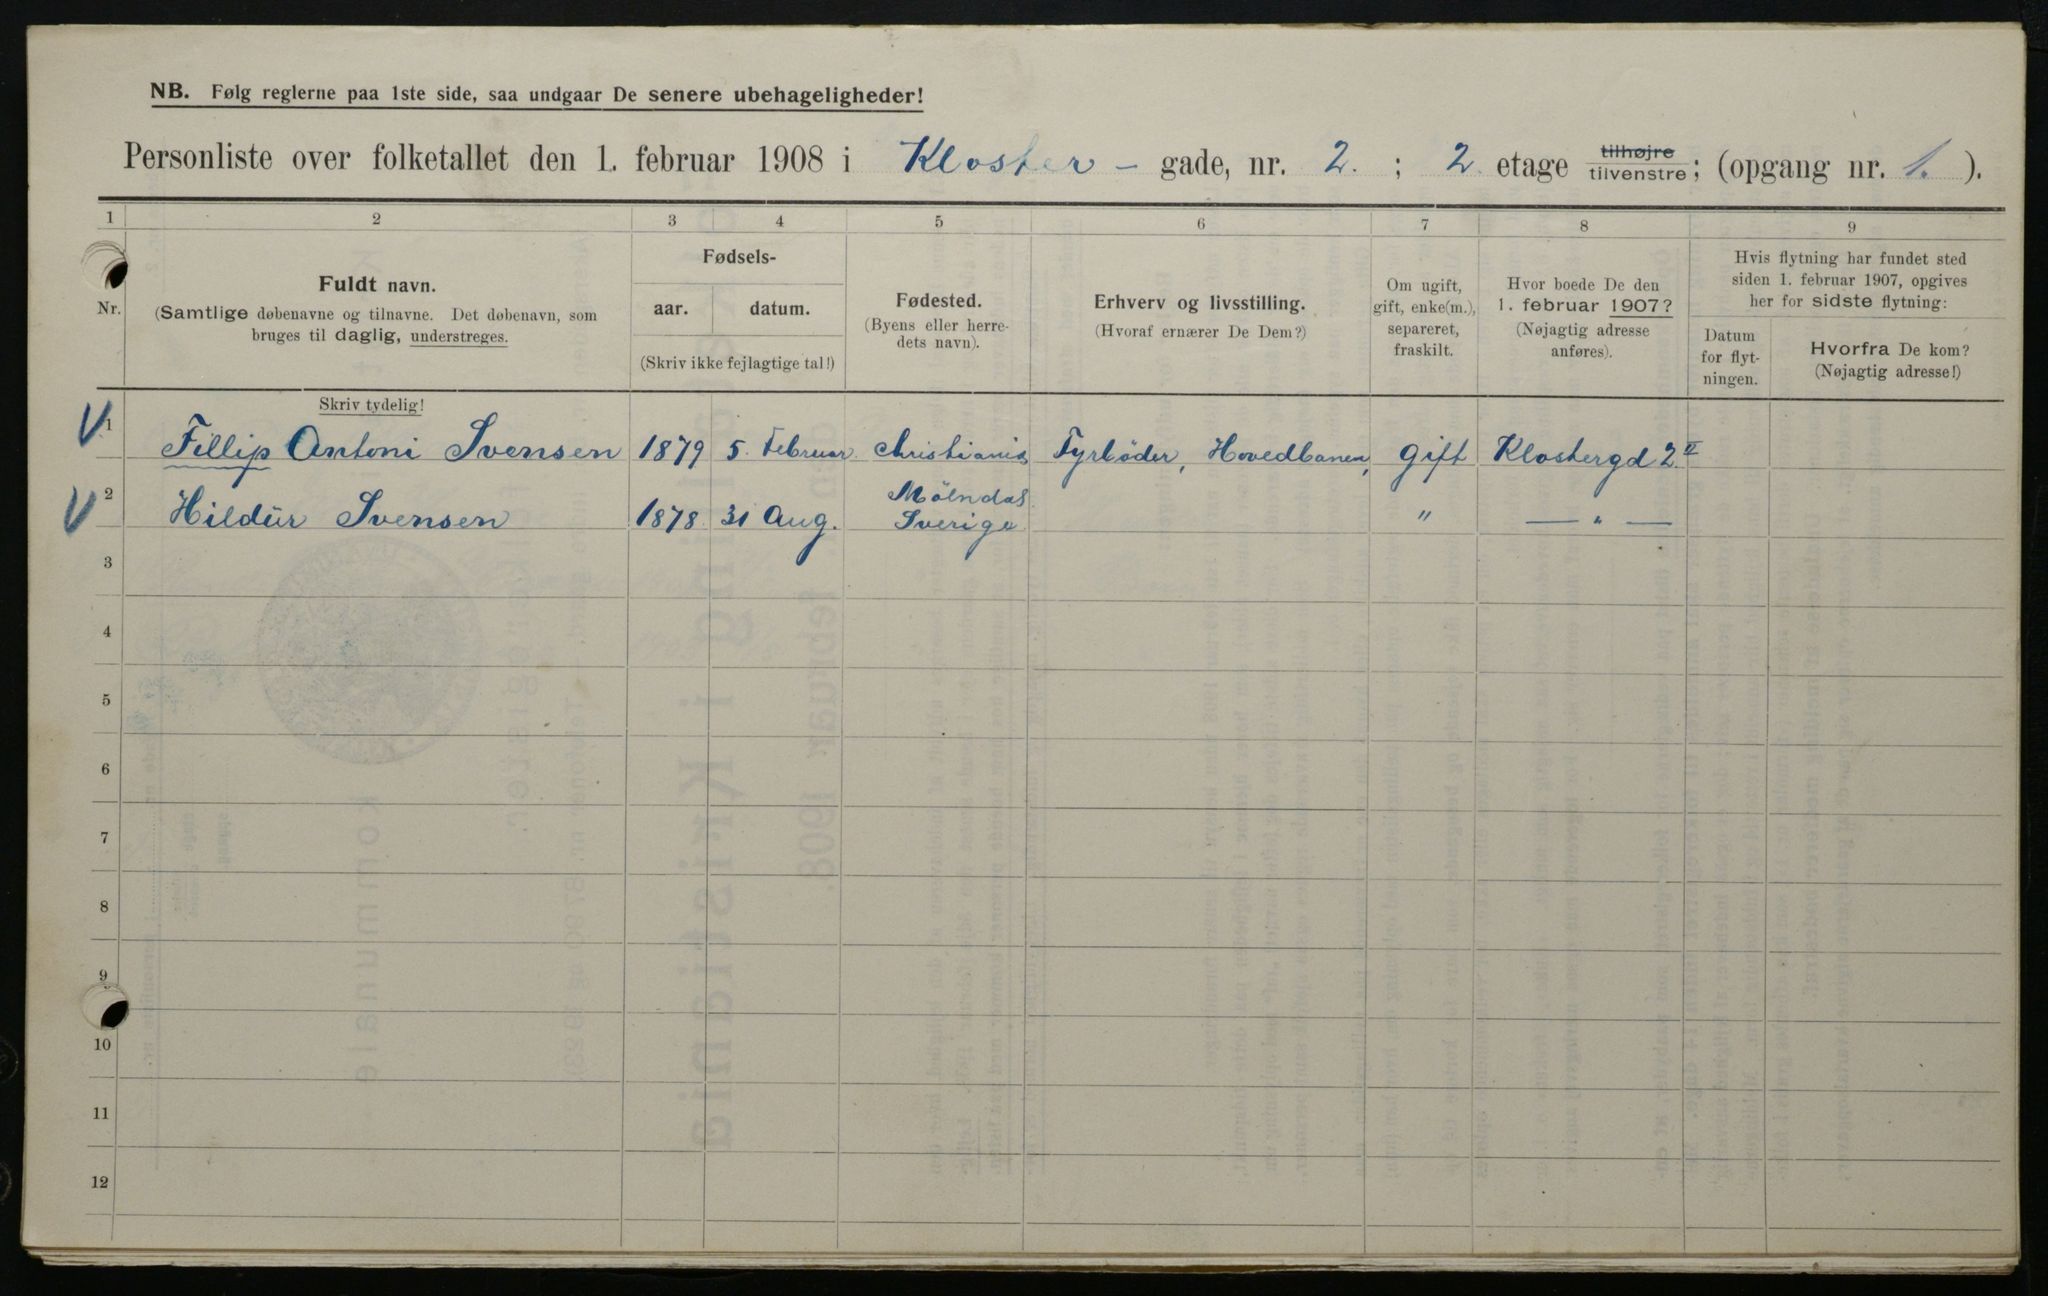 NB. Følg reglerne paa 1ste side, saa undgaar De senere ubehageligheder!
Personliste over folketallet den 1. februar 1908 i Kloster - gade, nr. 2. ; 2 etage tilhøjre tilvenstre; (opgang nr. 1. ).
1 2 3 4 5 6 7 8 9
Nr.
Fuldt navn.
(Samtlige døbenavne og tilnavne. Det døbenavn, som
bruges til daglig, understreges.
Skriv tydelig!
Fødsels-
aar. datum.
(Skriv ikke fejlagtige tal!)
Fødested.
(Byens eller herre-
dets navn).
Erhverv og livsstilling.
(Hvoraf ernærer De Dem?)
Om ugift,
gift, enke(m.),
separeret,
fraskilt.
Hvor boede De den
1. februar 1907?
(Nøjagtig adresse
anføres).
Hvis flytning har fundet sted
siden 1. februar 1907, opgives
her for sidste flytning:
Datum
for flyt-
ningen.
Hvorfra De kom?
(Nøjagtig adresse!)
1 Fillip Antoni Svensen 1879 5. Februar. Christiania Fyrbøder, Hovedbanen, gift Klostergd 2 II
2 Hildür Svensen 1878. 31 Aug. Mölndal Sverige " — " —
3
4
5
6
7
8
9
10
11
12